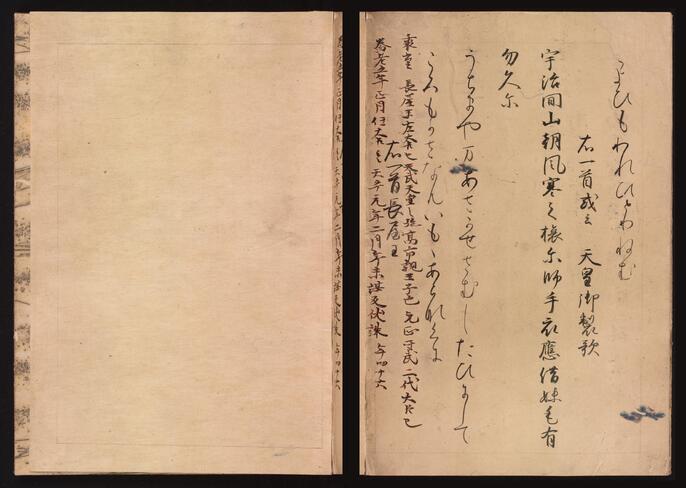 こよひもわれひとりねむ
右一首或云 天皇御製歌
宇治間山朝風寒之旅尓師手衣應借妹毛有
勿久尓
うちまやまあさかせさむしたひにして
ころもかさなんいもゝあらなくに
長屋王左大臣天武天皇之孫高市親王子也 元正聖武二代大臣也
右一首長屋王
養老五年正月任右大臣 天平元年二月辛未謀反伏誅 年四十六